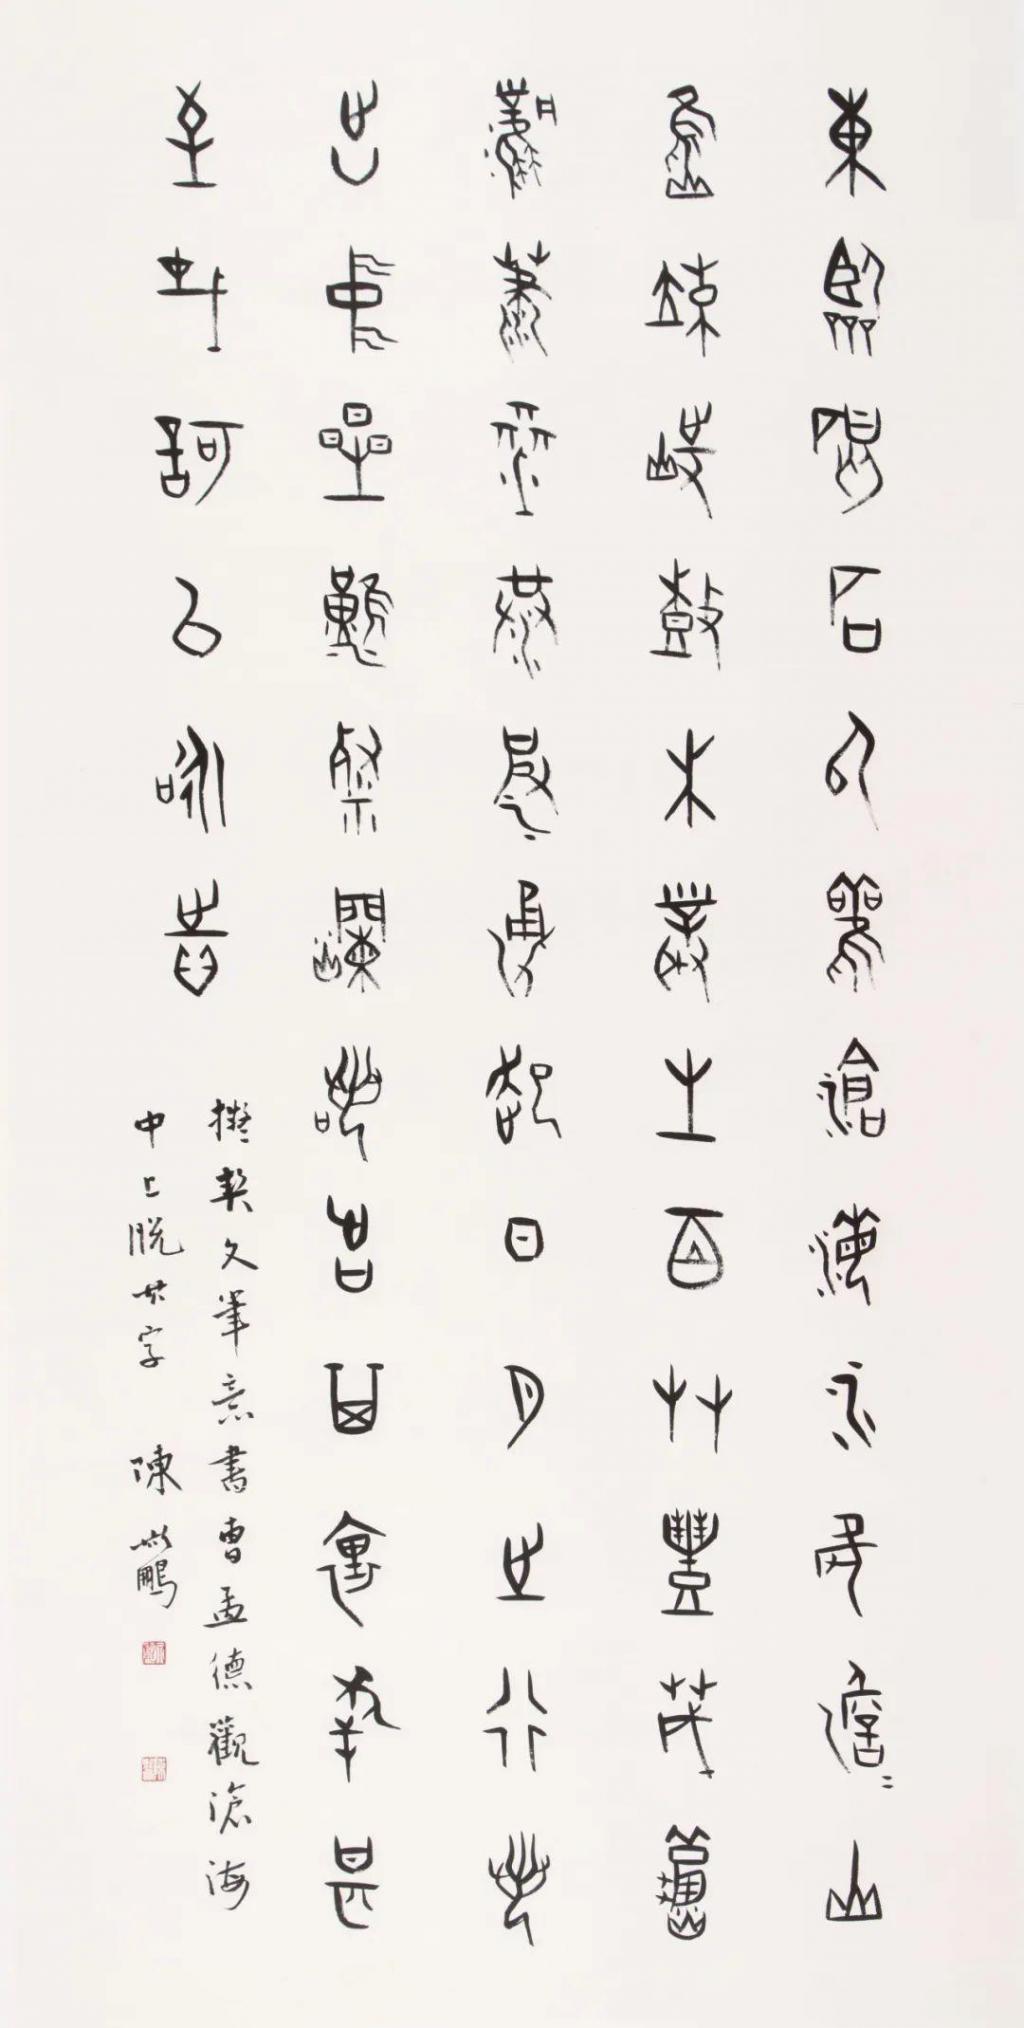 東臨碣石以觀滄海水何澹=山
島竦峙樹木叢生百草豐茂秋
風蕭瑟洪波湧起日月之行若
出中星漢燦爛若出其裏幸甚
至哉歌以詠志
擬契文筆意書曹孟德觀滄海
中上脫其字 陳斯鵬